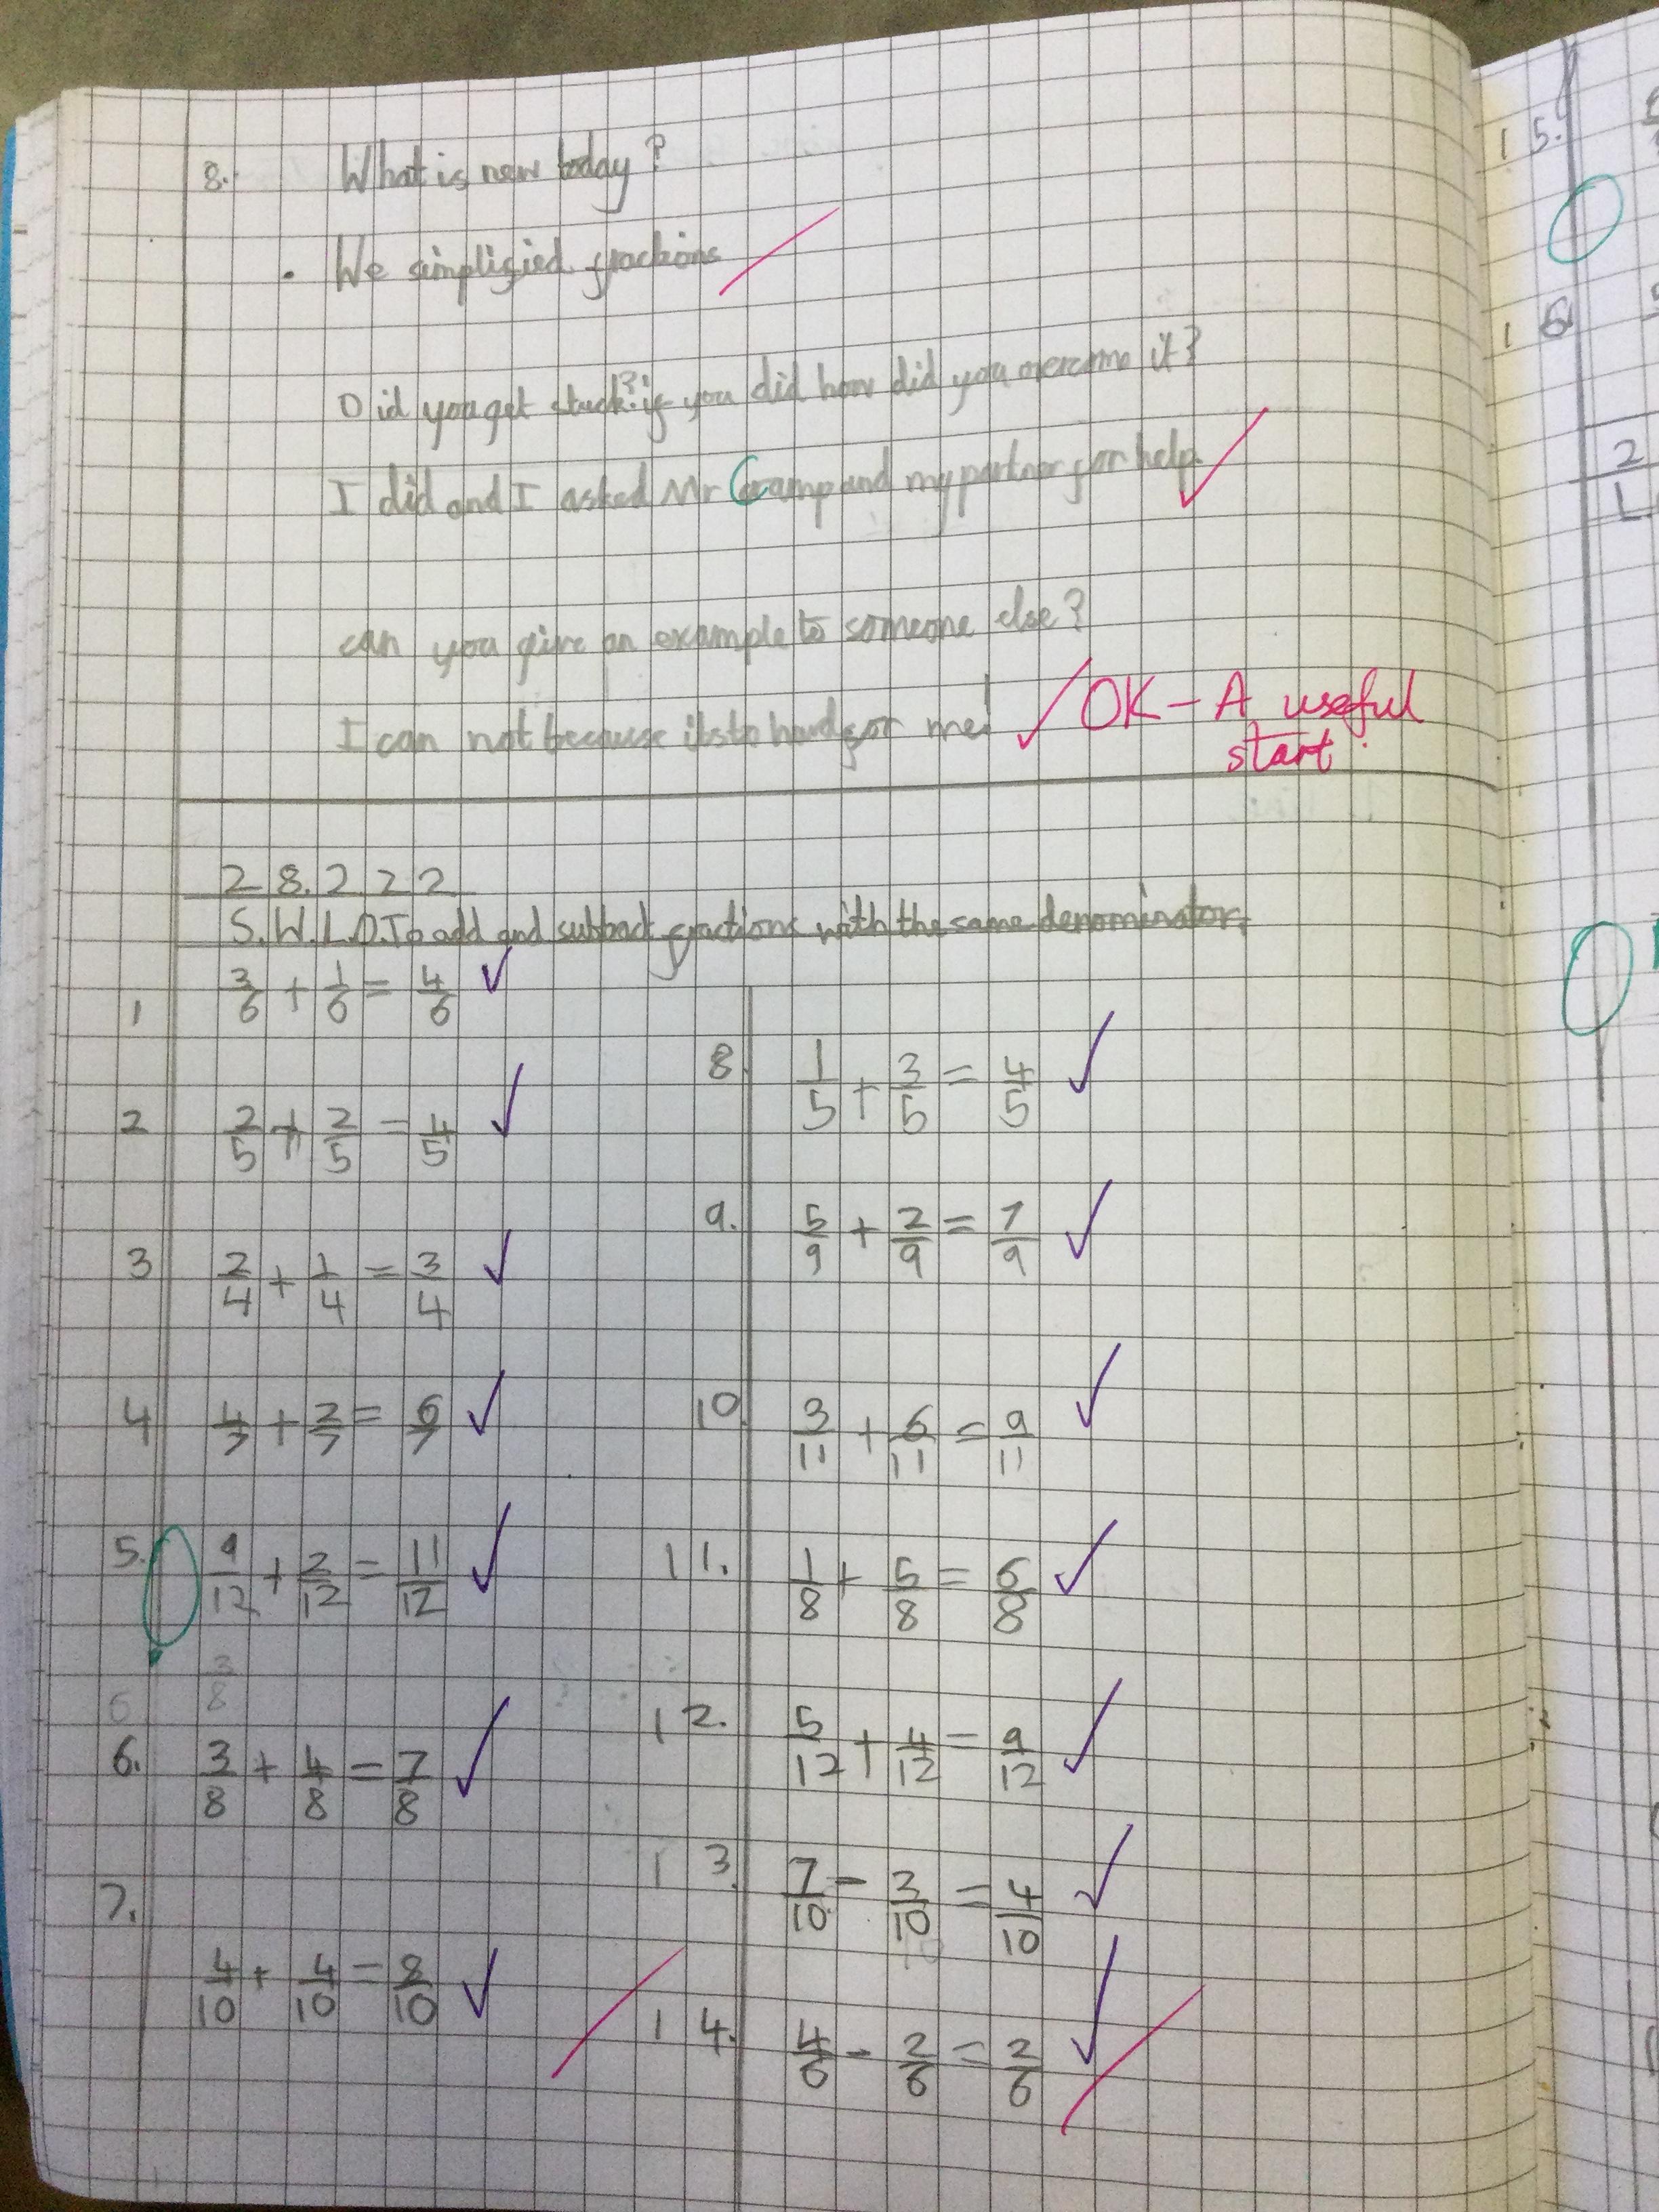 8. What is new today?
• We simplified fractions
Did you get stuck? if you did how did you overcome it?
I did and I asked Mr Cramp and my partner for help
can you give an example to someone else?
I can not because its to hard for me! OK - A useful
start.
28.2.22
S.W.L.O. To add and subtract fractions with the same denominator.
1 3/6 + 1/6 = 4/6
2 2/5 + 2/5 = 4/5
3 2/4 + 1/4 = 3/4
4 4/7 + 2/7 = 6/7
5. 9/12 + 2/12 = 11/12
6 3/8
6. 3/8 + 4/8 = 7/8
7. 4/10 + 4/10 = 8/10
8. 1/5 + 3/5 = 4/5
9. 5/9 + 2/9 = 7/9
10 3/11 + 6/11 = 9/11
11. 1/8 + 5/8 = 6/8
12. 5/12 + 4/12 = 9/12
13. 7/10 - 3/10 = 4/10
14. 4/6 - 2/6 = 2/6
15.
16
2